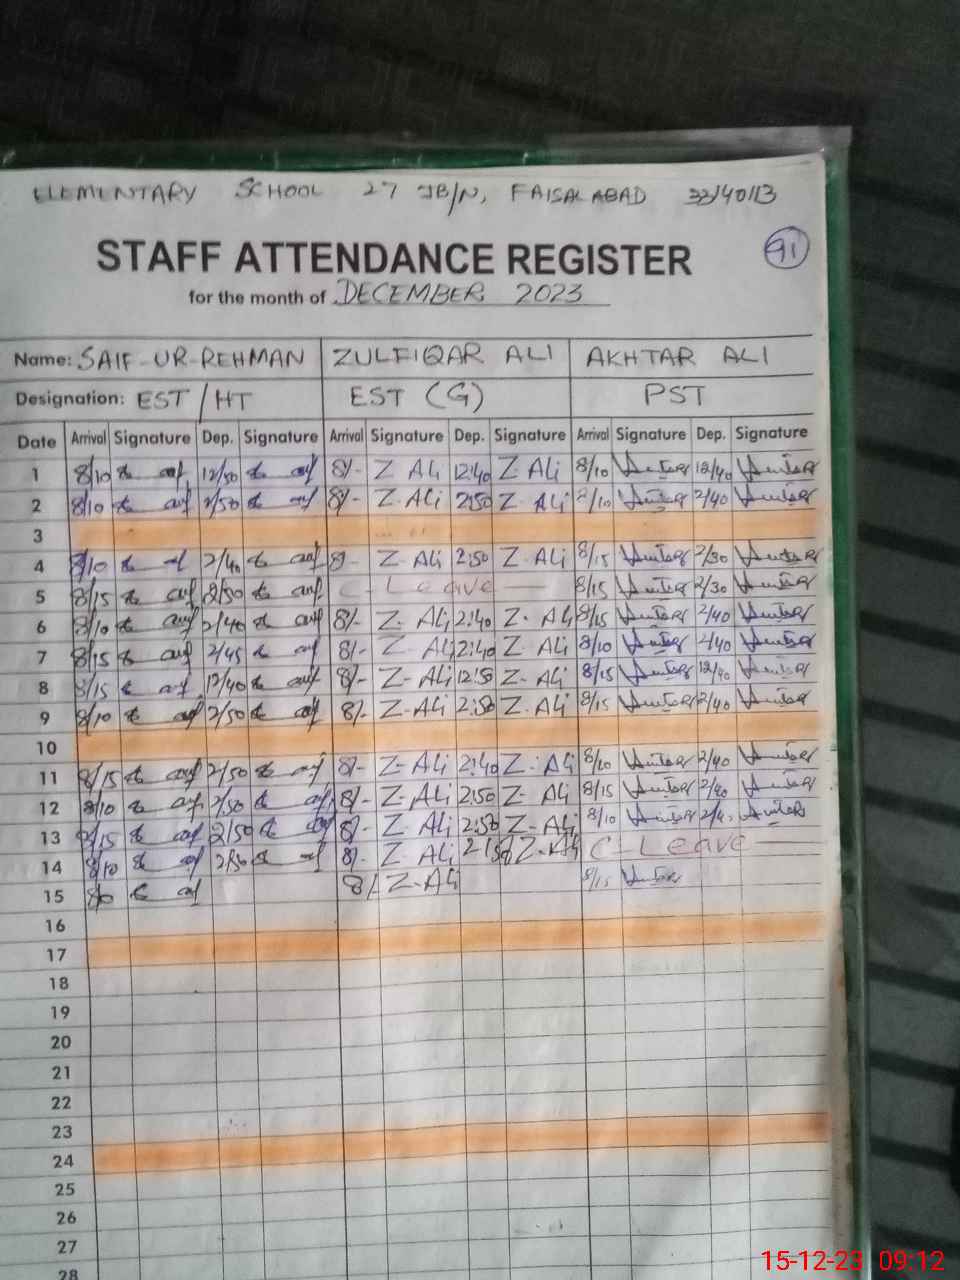 ELEMENTARY SCHOOL 27 JB/N, FAISALABAD 33/40113
STAFF ATTENDANCE REGISTER
91
for the month of DECEMBER 2023
Name: SAIF-UR-REHMAN ZULFIQAR ALI AKHTAR ALI
Designation: EST/HT EST (G) PST
Date Arrival Signature Dep. Signature Arrival Signature Dep. Signature Arrival Signature Dep. Signature
1 8/10 12/50 8/- Z ALi 12:40 Z ALi 8/10 12/40
2 8/10 2/50 8/- Z-ALi 2:50 Z-ALi 8/10 2/40
3
4 8/10 2/40 8/- Z-ALi 2:50 Z-ALi 8/15 2/30
5 8/15 2/50 C-Leave 8/15 2/30
6 8/10 2/40 8/- Z-ALi 2:40 Z-ALi 8/15 2/40
7 8/15 2/45 8/- Z-ALi 2:40 Z-ALi 8/10 2/40
8 8/15 12/40 8/- Z-ALi 12:50 Z-ALi 8/15 12/40
9 8/10 2/50 8/- Z-ALi 2:50 Z-ALi 8/15 2/40
10
11 8/15 2/50 8/- Z-ALi 2:40 Z-ALi 8/10 2/40
12 8/10 2/50 8/- Z-ALi 2:50 Z-ALi 8/15 2/40
13 8/15 2/50 8/- Z ALi 2:50 Z-ALi 8/10
14 8/10 2/50 8/- Z ALi 2/50 Z-ALi C-Leave
15 8/- Z-ALi 8/15
16
17
18
19
20
21
22
23
24
25
26
27
28
15-12-23 09:12